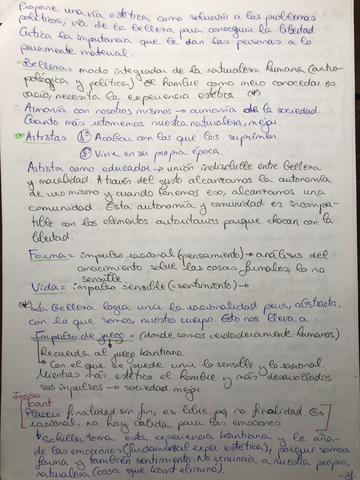 Propone una vía estética como solución a los problemas
políticos, vía de la belleza para conseguir la libertad
Critica la importancia que le dan las personas a lo
puramente material.
Belleza = modo integrador de la naturaleza humana (antro-
pológica y política). El hombre como mero conocedor es
vacío, necesita la experiencia estética (*)
Armonía con nosotros mismos → armonía de la sociedad.
Cuanto más retomemos nuestra naturaleza, mejor.
Artistas ① Acaban con las que los suprimen.
② Vivir en su propia época.
Artista como educador → unión indisoluble entre belleza
y moralidad. A través del gusto alcanzamos la autonomía
de uno mismo y cuando tenemos eso, alcanzamos una
comunidad. Esta autonomía y comunidad es incompa-
tible con los elementos autoritarios porque chocan con la
libertad.
Forma = impulso racional (pensamiento) → análisis del
conocimiento sobre las cosas formales, lo no
sensible
Vida = impulso sensible (sentimiento) →
La Belleza logra unir la racionalidad pura, abstracta,
con lo que somos, nuestro cuerpo. Esto nos lleva a
Impulso de juego = (donde somos verdaderamente humanos)
Recuerda al juego kantiano
Con él se puede unir lo sensible y lo racional.
Mientras más estético el hombre y más desarrollados
sus impulsos → sociedad mejor.
Inciso
Kant
finalidad sin fin, es libre pq no finalidad. Es
racional, no hay cabida para las emociones
Schiller toma esta experiencia kantiana y le aña-
de las emociones (fundamental exper estética), porque somos
forma y también sentimiento. No renuncia a nuestra propia
naturaleza (cosa que Kant eliminó).